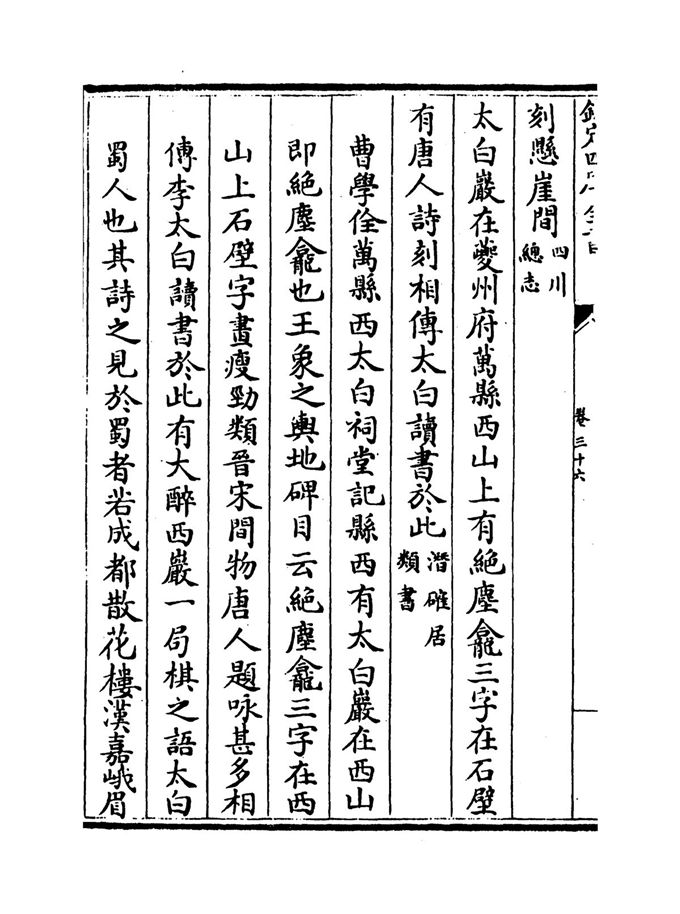 欽定四庫全書
卷三十六
刻懸崖間四川總志
太白巖在夔州府萬縣西山上有絶塵龕三字在石壁
有唐人詩刻相傳太白讀書於此潛確居類書
曹學佺萬縣西太白祠堂記縣西有太白巖在西山
即絶塵龕也王象之輿地碑目云絶塵龕三字在西
山上石壁字畫瘦勁類晉宋間物唐人題咏甚多相
傳李太白讀書於此有大醉西巖一局棋之語太白
蜀人也其詩之見於蜀者若成都散花樓漢嘉峨眉